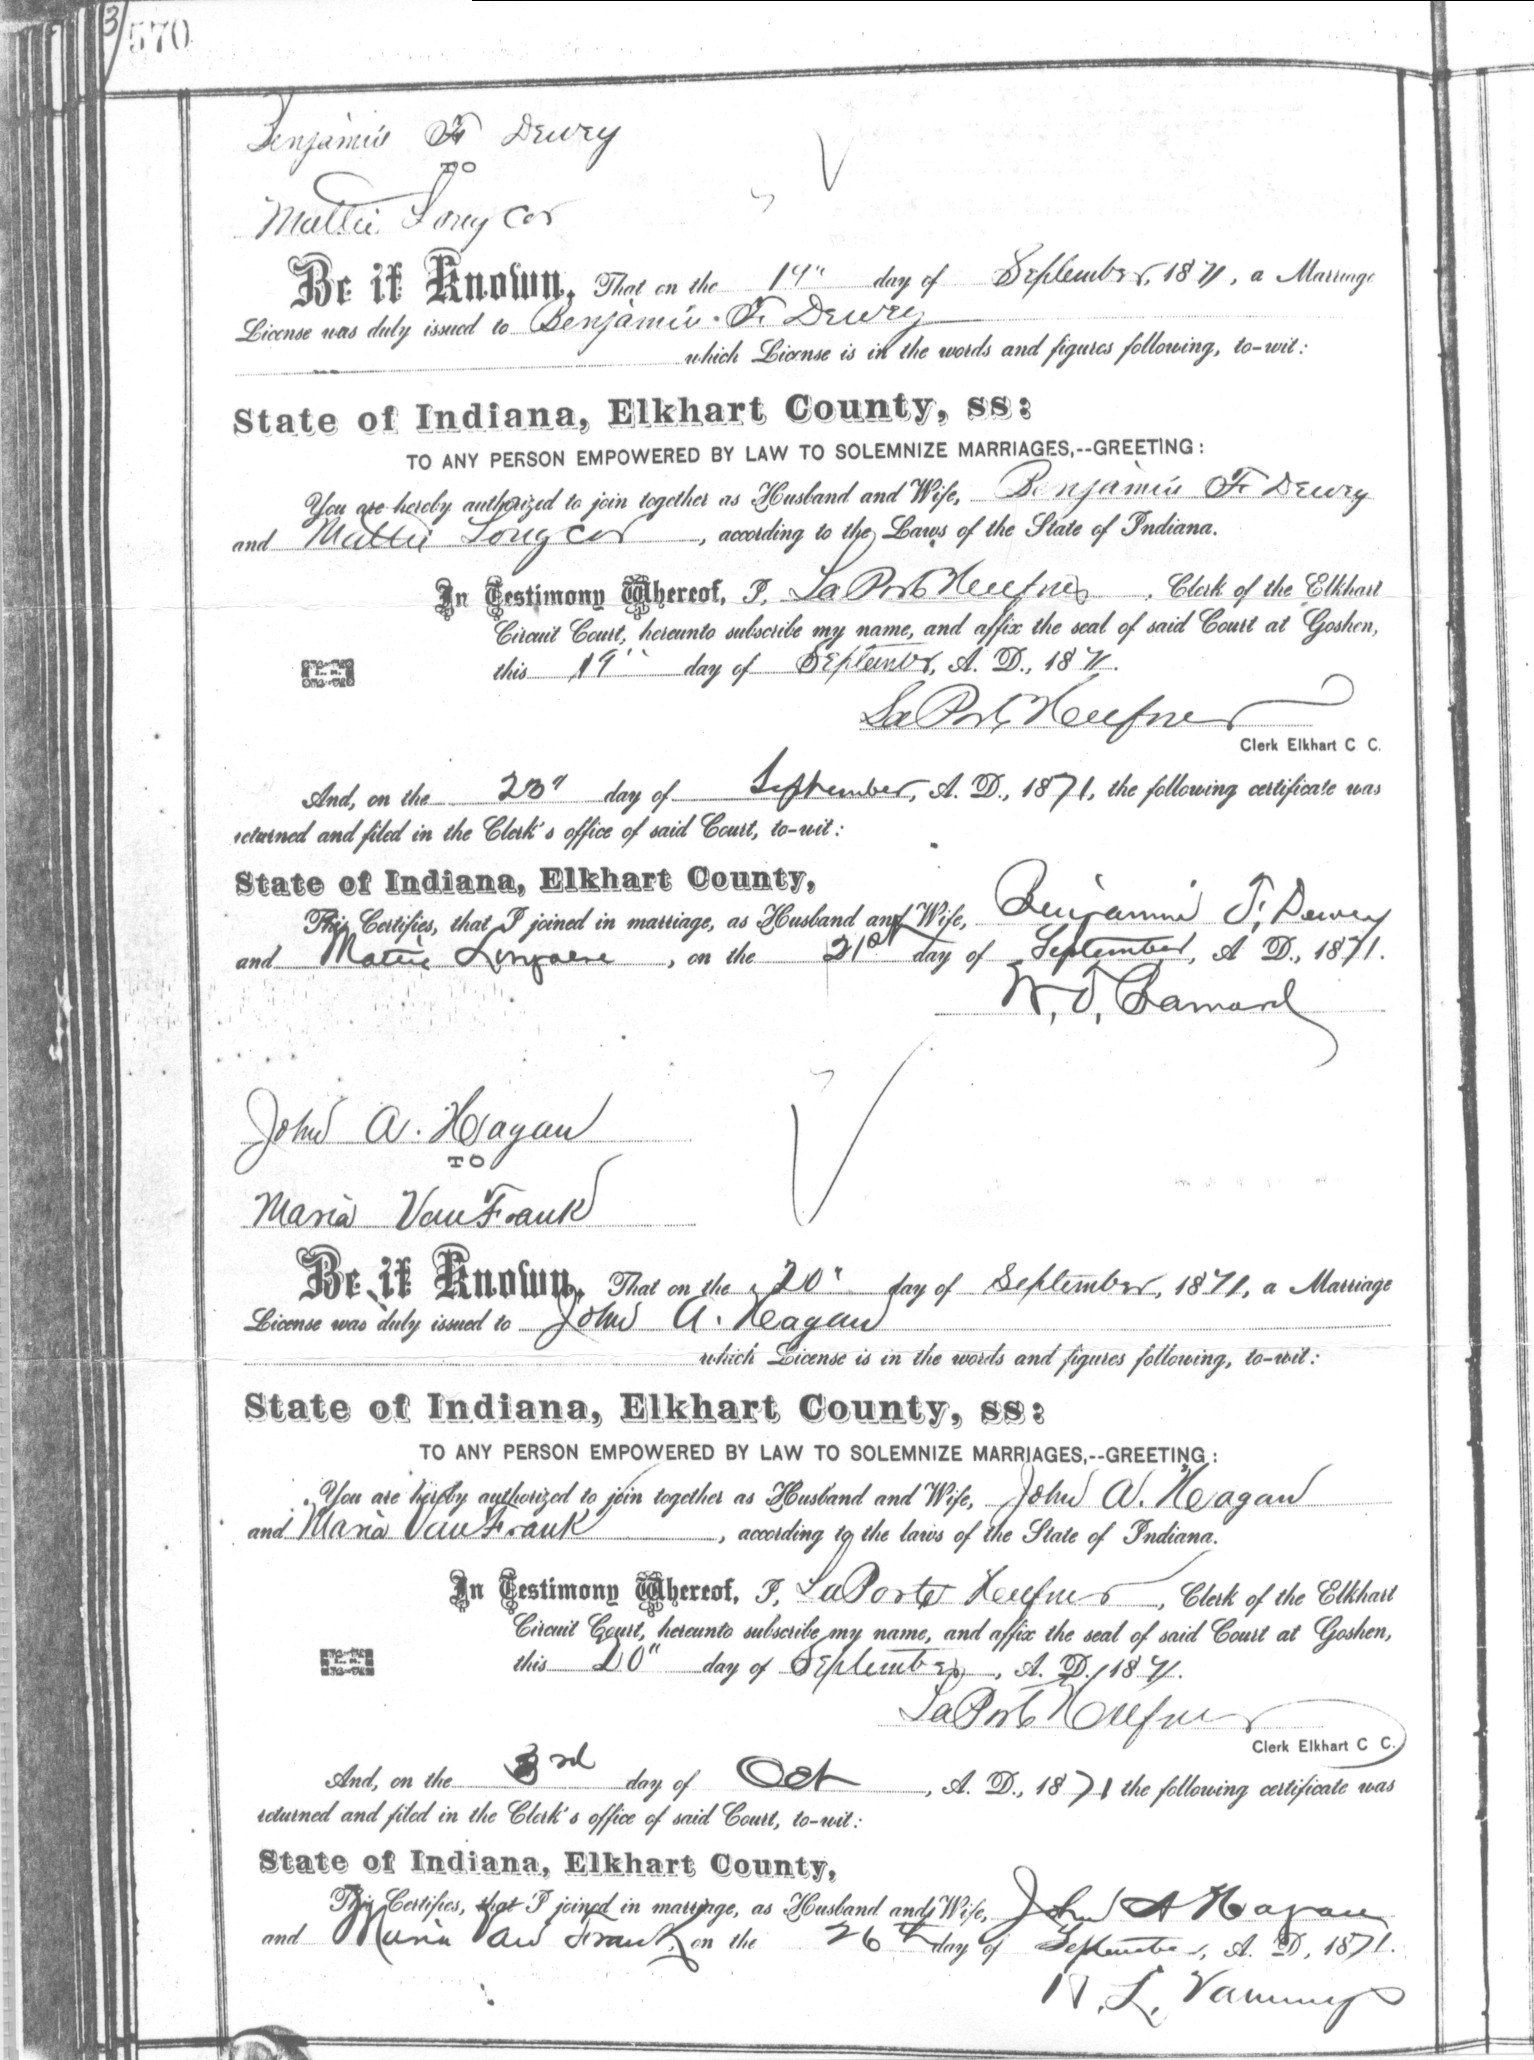 3/570
Benjamin F. Dewey
TO
Mattie Longcor
Be it Known, That on the 19" day of September, 1871, a Marriage
License was duly issued to Benjamin F. Dewey
which License is in the words and figures following, to-wit:
State of Indiana, Elkhart County, ss:
TO ANY PERSON EMPOWERED BY LAW TO SOLEMNIZE MARRIAGES,--GREETING:
You are hereby authorized to join together as Husband and Wife, Benjamin F. Dewey
and Mattie Longcor, according to the Laws of the State of Indiana.
In Testimony Whereof, I, LaPorte Heefner, Clerk of the Elkhart
Circuit Court, hereunto subscribe my name, and affix the seal of said Court at Goshen,
this 19" day of September, A. D., 1871.
LaPorte Heefner
Clerk Elkhart C C.
And, on the 23" day of September, A. D., 1871, the following certificate was
returned and filed in the Clerk's office of said Court, to-wit:
State of Indiana, Elkhart County,
This Certifies, that I joined in marriage, as Husband and Wife, Benjamin F. Dewey
and Mattie, on the 21st day of September, A D., 1871.
John A. Heagan
TO
Maria VanFrank
Be it Known, That on the 20" day of September, 1871, a Marriage
License was duly issued to John A. Heagan
which License is in the words and figures following, to-wit:
State of Indiana, Elkhart County, ss:
TO ANY PERSON EMPOWERED BY LAW TO SOLEMNIZE MARRIAGES,--GREETING:
You are hereby authorized to join together as Husband and Wife, John A. Heagan
and Maria VanFrank, according to the laws of the State of Indiana.
In Testimony Whereof, I, LaPorte Heefner, Clerk of the Elkhart
Circuit Court, hereunto subscribe my name, and affix the seal of said Court at Goshen,
this 20" day of September, A. D., 1871.
LaPorte Heefner
Clerk Elkhart C C.
And, on the 3rd day of Oct, A. D., 1871 the following certificate was
returned and filed in the Clerk's office of said Court, to-wit:
State of Indiana, Elkhart County,
This Certifies, that I joined in marriage, as Husband and Wife, John A Heagan
and Maria Van Frank, on the 26th day of September, A. D., 1871.